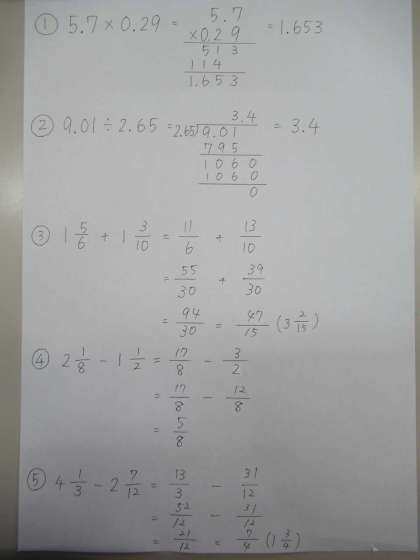 ① 5.7 × 0.29 = 5.7 = 1.653
×0.29
513
114
1.653
② 9.01 ÷ 2.65 = 2.65)9.01 = 3.4
3.4
795
1060
1060
0
③ 1 5/6 + 1 3/10 = 11/6 + 13/10
= 55/30 + 39/30
= 94/30 = 47/15 (3 2/15)
④ 2 1/8 - 1 1/2 = 17/8 - 3/2
= 17/8 - 12/8
= 5/8
⑤ 4 1/3 - 2 7/12 = 13/3 - 31/12
= 52/12 - 31/12
= 21/12 = 7/4 (1 3/4)